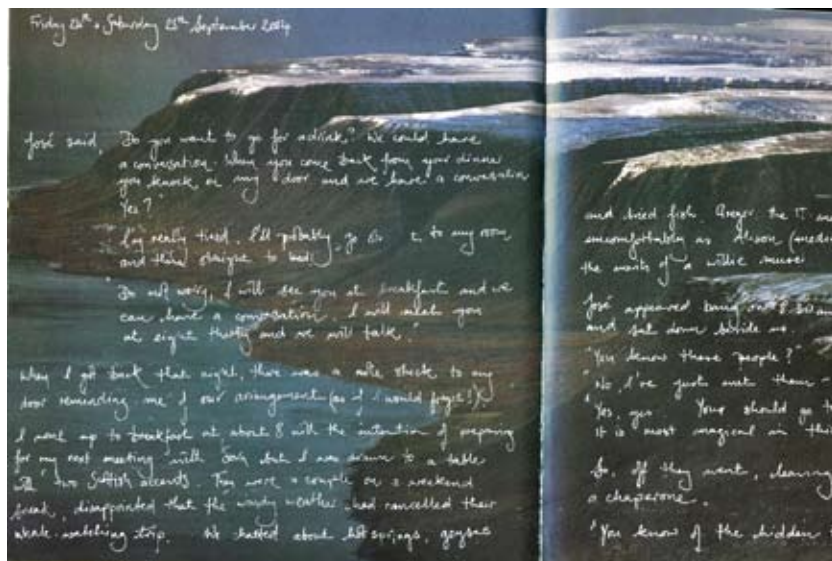 Friday 24th + Saturday 25th September 2004
José said, "Do you want to go for a drink? We could have
a conversation. When you come back from your dinner
you knock on my door and we have a conversation
Yes?"
"I'm really tired. I'll probably go to my room
and then straight to bed."
"Do not worry, I will see you at breakfast and we
can have a conversation. I will meet you
at eight thirty and we will talk."
When I got back that night, there was a note stuck to my
door reminding me of our arrangement (as if I would forget!)
I went up to breakfast at about 8 with the intention of preparing
for my next meeting with José but I was drawn to a table
with two Scottish accents. They were a couple on a weekend
break, disappointed that the windy weather had cancelled their
whale-watching trip. We talked about hot springs, geysers
and dried fish. Gregor, the IT
uncomfortably as Alison
the merits of a willie museum
José appeared 8.30
and sat down beside us.
"You know these people?"
"No, I've just met them
"Yes, yes. You should go
It is most magical in this
So, off they went, leaving
a chaperone.
"You know of the hidden